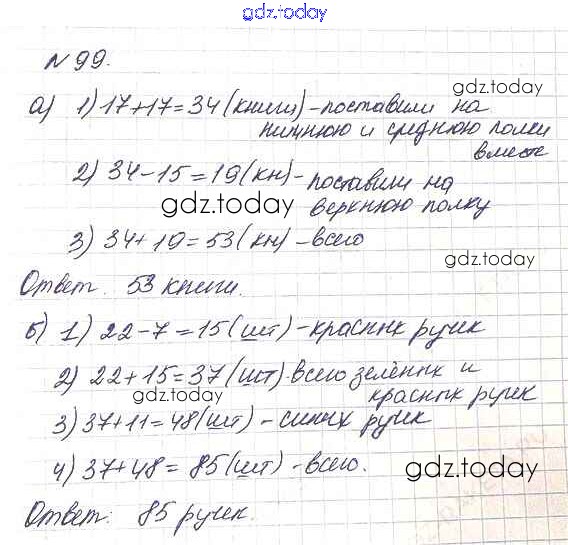 gdz.today
№ 99.
gdz.today
а) 1) 17+17=34 (книги) - поставили на
нижнюю и среднюю полки
вместе
2) 34-15=19 (кн) - поставили на
gdz.today
верхнюю полку
3) 34+19=53 (кн) - всего
gdz.today
Ответ: 53 книги.
б) 1) 22-7=15 (шт) - красных ручек
2) 22+15=37 (шт) - всего зелёных и
gdz.today
красных ручек
3) 37+11=48 (шт) - синих ручек
4) 37+48=85 (шт) - всего.
gdz.today
Ответ: 85 ручек.